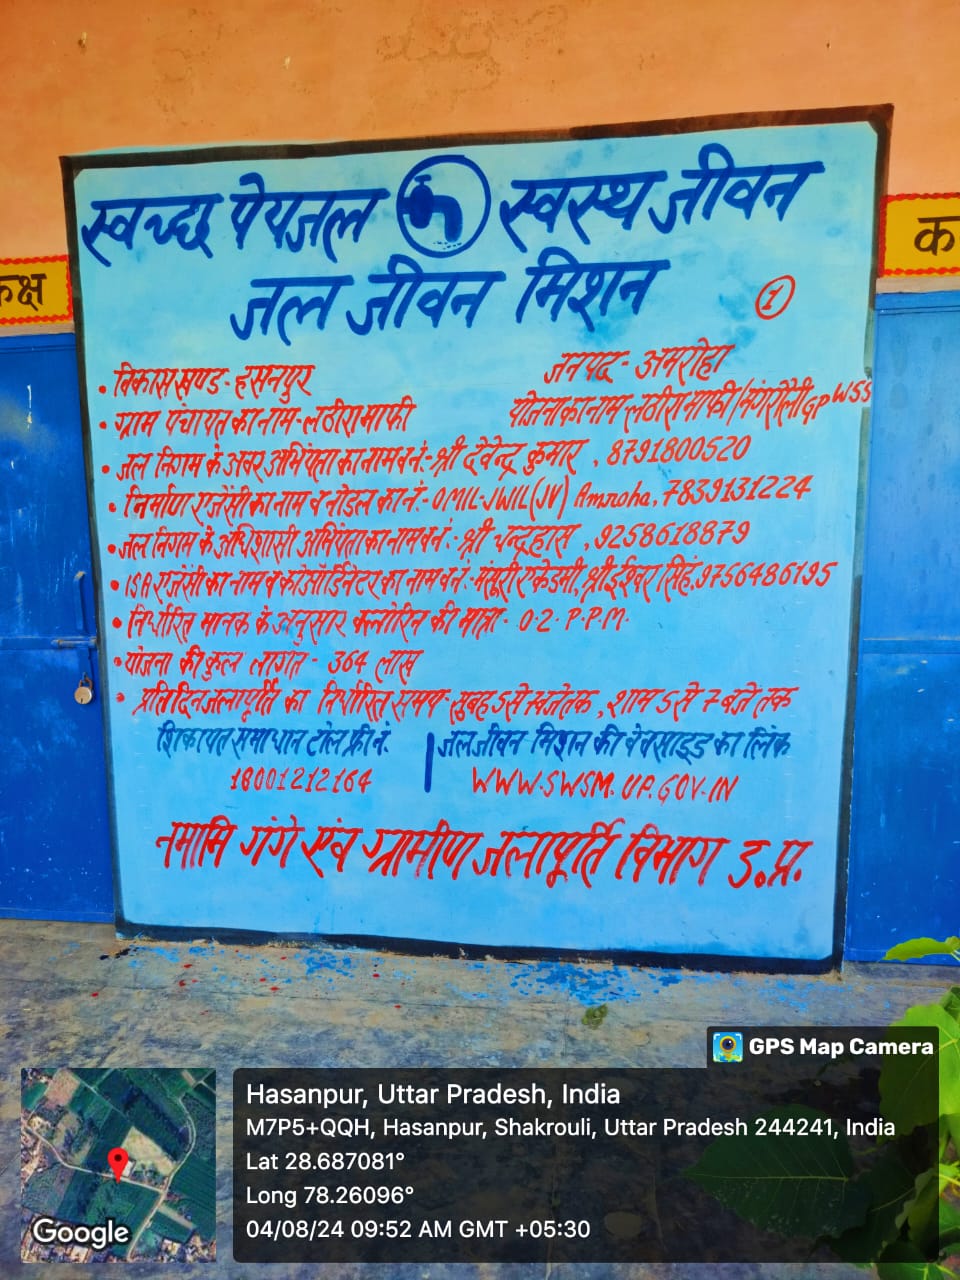 स्वच्छ पेयजल स्वस्थ जीवन
जल जीवन मिशन
1
कक्ष
क
• विकास खण्ड - हसनपुर जनपद - अमरोहा
• ग्राम पंचायत का नाम - लठीरा माफी योजना का नाम - लठीरा माफी/मंगरौली GP WSS
• जल निगम के अवर अभियंता का नाम व नं:- श्री देवेन्द्र कुमार , 8791800520
• निर्माण एजेंसी का नाम व नोडल का नं:- OMIL-JWIL(JV) Amroha, 7839131224
• जल निगम के अधिशासी अभियंता का नाम व नं:- श्री चन्द्रहास , 9258618879
• ISA एजेंसी का नाम व कोऑर्डिनेटर का नाम व नं:- मंसूरी एकेडमी, श्री ईश्वर सिंह, 9756486195
• निर्धारित मानक के अनुसार क्लोरिन की मात्रा - 0.2. P.P.M.
• योजना की कुल लागत - 364 लाख
• प्रतिदिन जलापूर्ति का निर्धारित समय - सुबह 5 से 7 बजे तक , शाम 5 से 7 बजे तक
शिकायत समाधान टोल फ्री नं. जल जीवन मिशन की वेबसाइड का लिंक
18001212164 WWW.SWSM.UP.GOV.IN
नमामि गंगे एंव ग्रामीण जलापूर्ति विभाग उ.प्र.
GPS Map Camera
Hasanpur, Uttar Pradesh, India
M7P5+QQH, Hasanpur, Shakrouli, Uttar Pradesh 244241, India
Lat 28.687081°
Long 78.26096°
04/08/24 09:52 AM GMT +05:30
Google